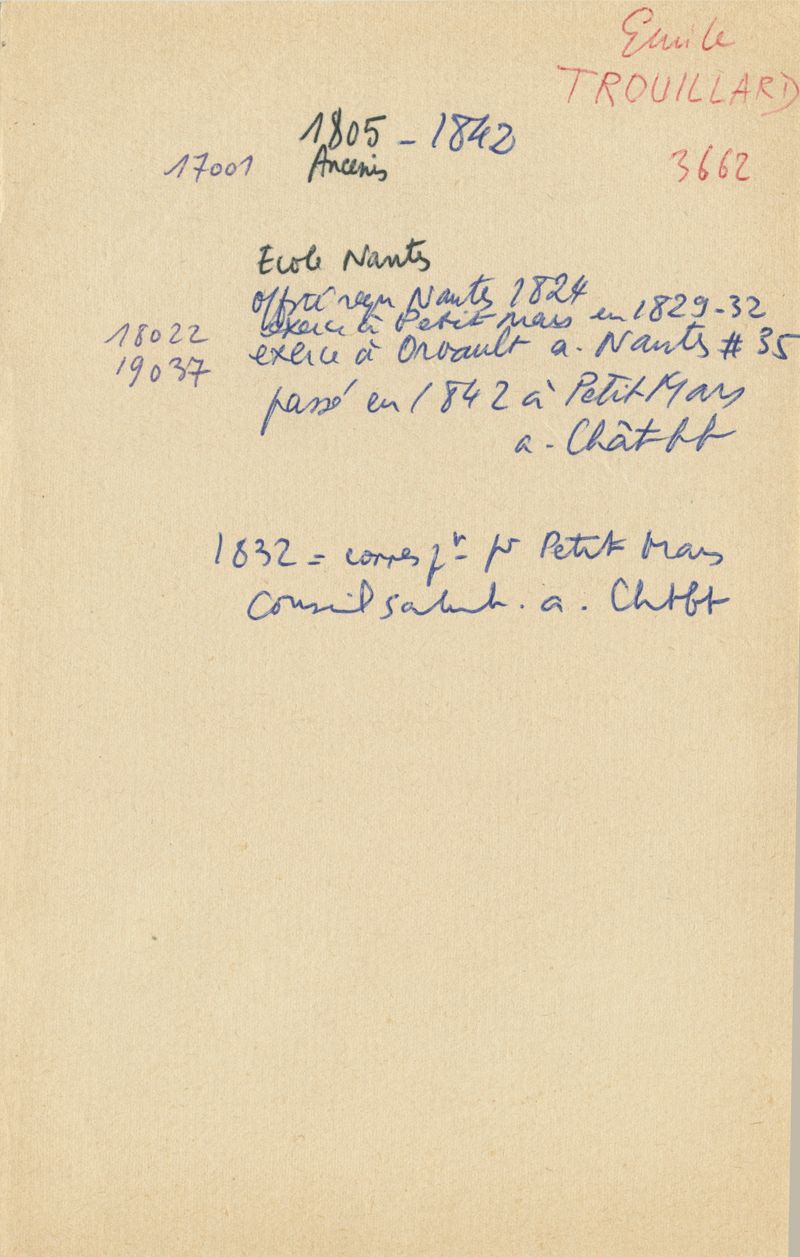 Emile
TROUILLARD
1805 - 1842
17001 Ancenis 3662
Ecole Nantes
offsté reçu Nantes 1824
exerce à Petit Mars en 1829-32
18022 exerce à Orvault a. Nantes # 35
19037
passé en 1842 à Petit Mars
a. Châtbt
1832 = corresp pr Petit Mars
Conseil salub. a. Chtbt